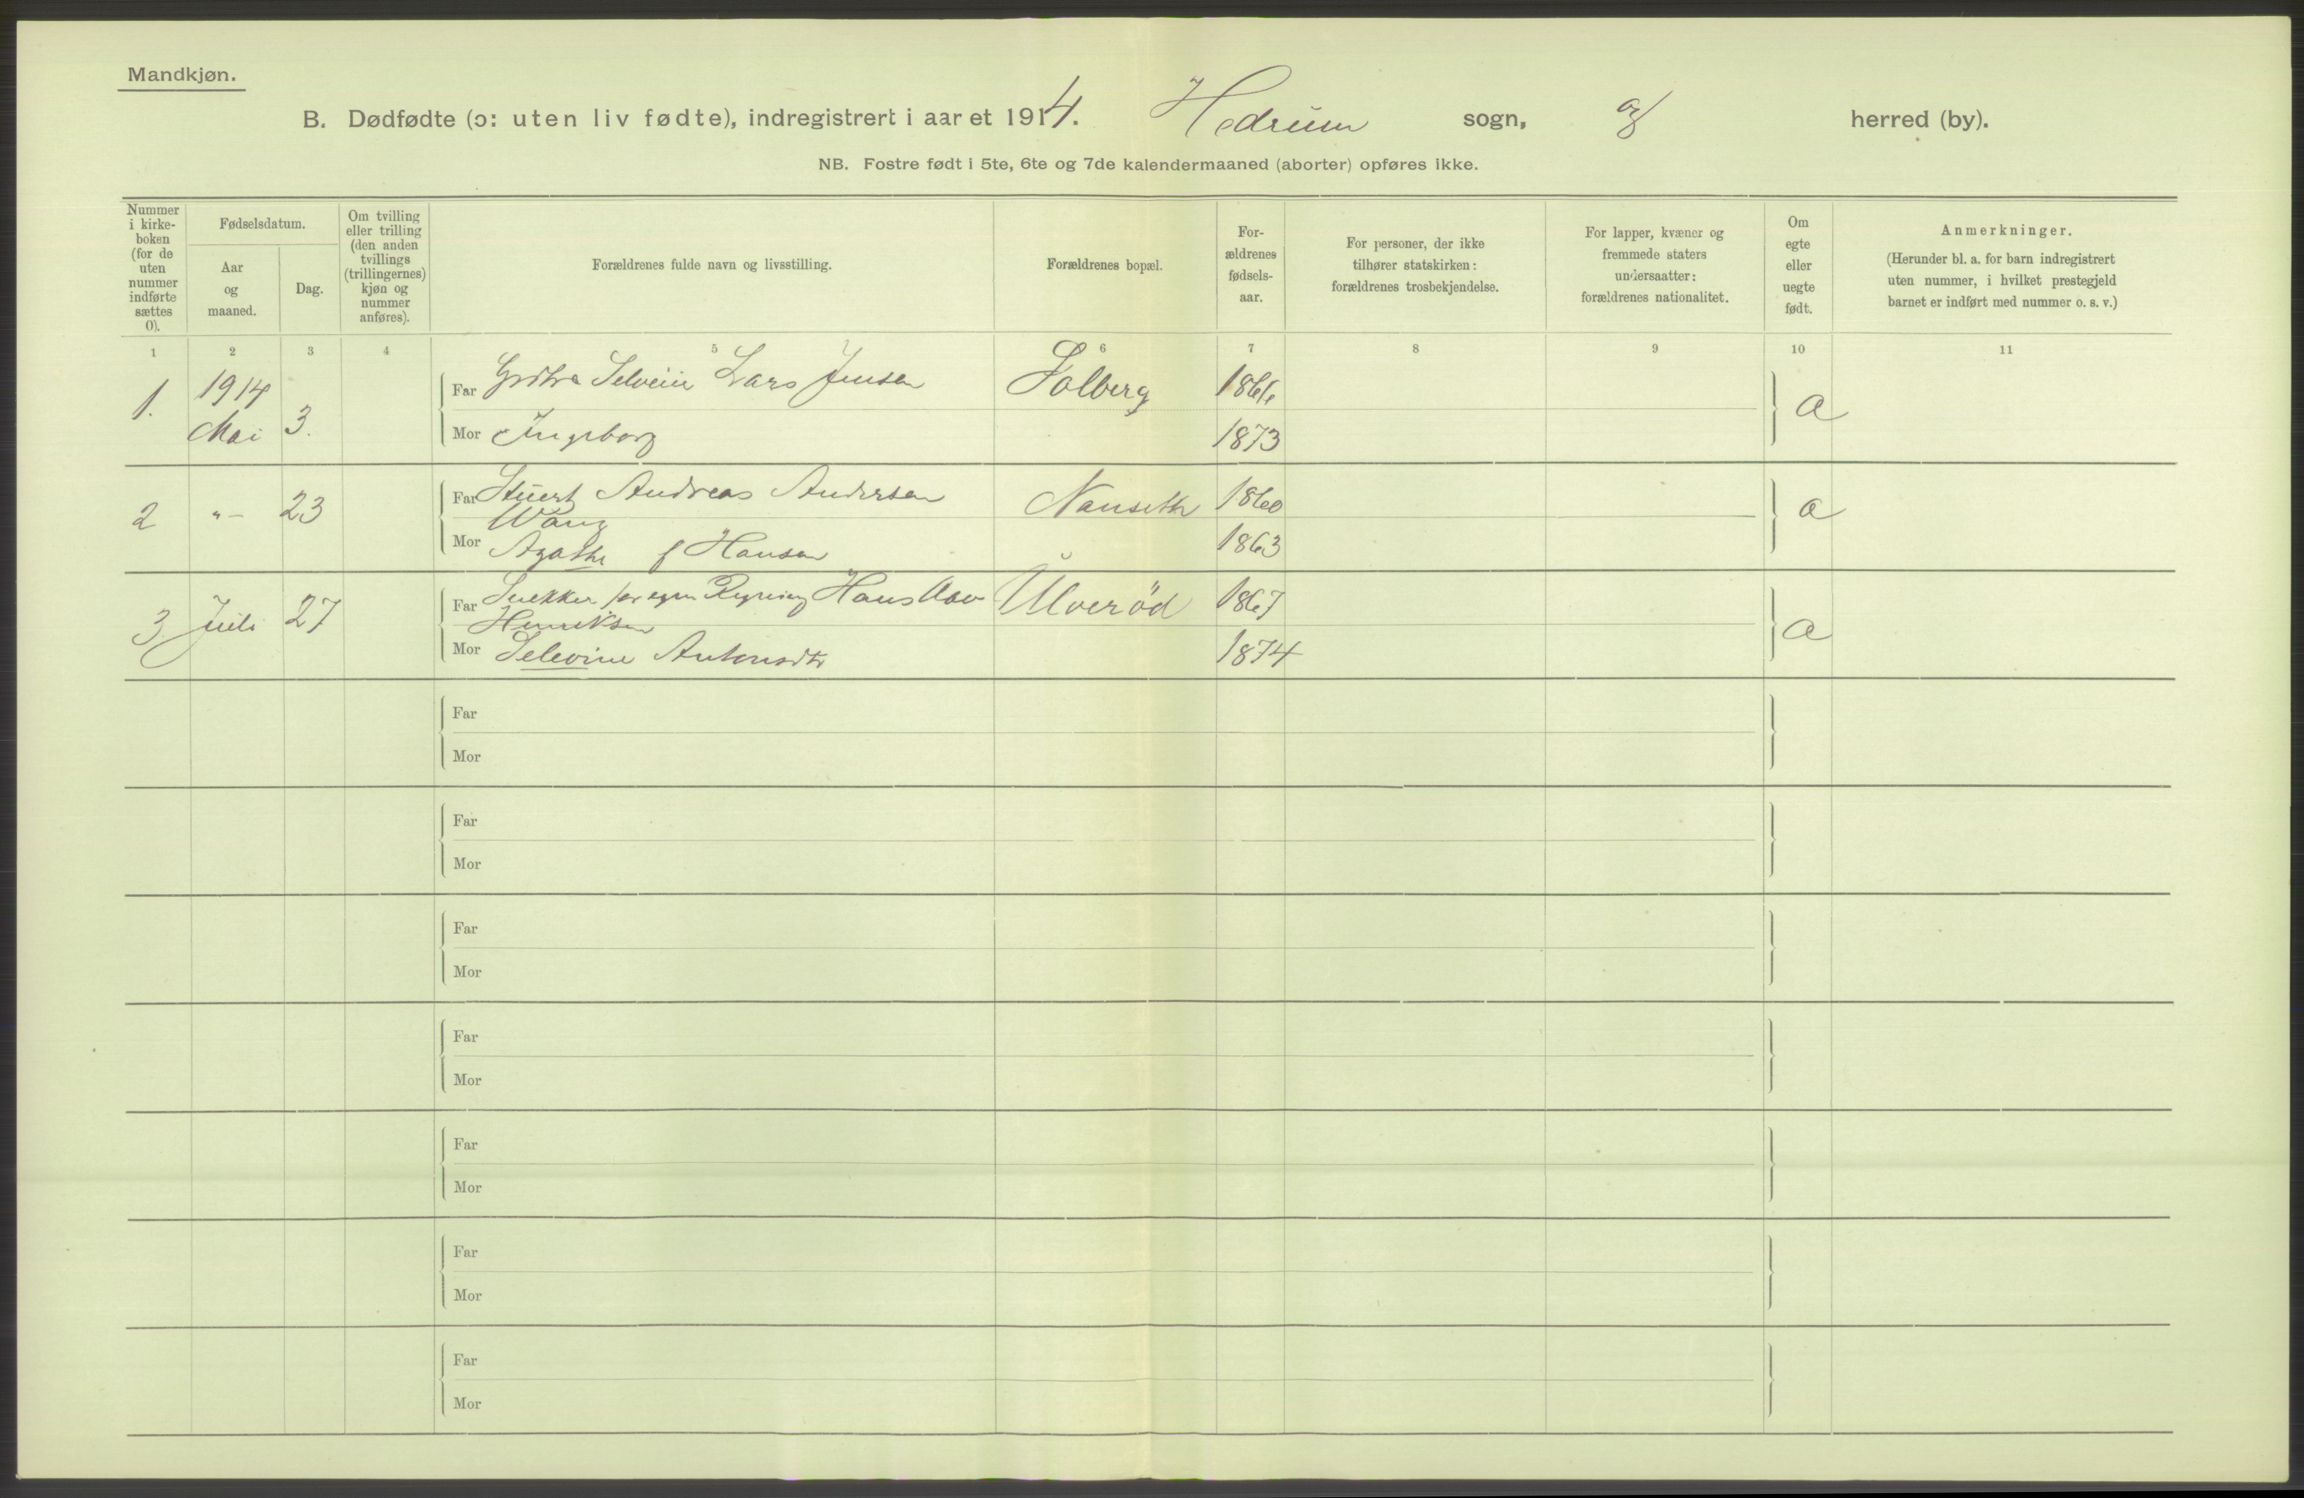 Mandkjøn.
B. Dødfødte (ɔ: uten liv fødte), indregistrert i aaret 1914. Hedrum sogn, og herred (by).
NB. Fostre født i 5te, 6te og 7de kalendermaaned (aborter) opføres ikke.
Nummer i kirkeboken (for de uten nummer indførte sættes 0).
Fødselsdatum.
Aar og maaned.
Dag.
Om tvilling eller trilling (den anden tvillings (trillingernes) kjøn og nummer anføres).
Forældrenes fulde navn og livsstilling.
Forældrenes bopæl.
Forældrenes fødselsaar.
For personer, der ikke tilhører statskirken: forældrenes trosbekjendelse.
For lapper, kvæner og fremmede staters undersaatter: forældrenes nationalitet.
Om egte eller uegte født.
Anmerkninger.
(Herunder bl. a. for barn indregistrert uten nummer, i hvilket prestegjeld barnet er indført med nummer o. s. v.)
1 2 3 4 5 6 7 8 9 10 11
1. 1914 Mai 3. Far Lars Jensen Solberg 1866 a
Mor Ingeborg 1873
2 "- 23 Far Andreas Andersen Nanseth 1860 a
Wang
Mor Agathe f Hansen 1863
3 Juli 27 Far Snekker for egen Regning Hans Ulverød 1867 a
Henriksen
Mor Selevine Antonsdtr 1874
Far
Mor
Far
Mor
Far
Mor
Far
Mor
Far
Mor
Far
Mor
Far
Mor